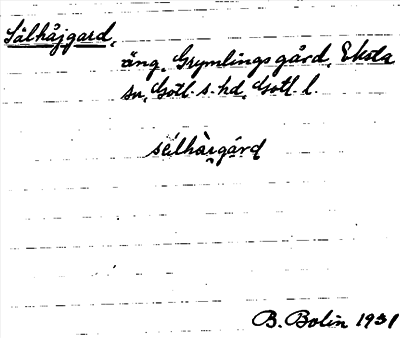 Sälhåjgard,
äng, Grymlings gård, Eksta
sn, Gotl. s. hd, Gotl. l.
B. Bolin 1931